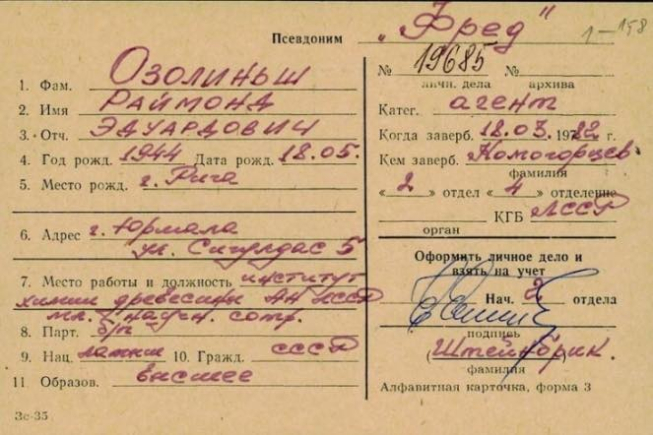 Псевдоним „Фред"
1—158
№ 19685 № 
личн. дела архива
1. Фам. Озолиньш
2. Имя Раймонд
3. Отч. Эдуардович
4. Год рожд. 1944 Дата рожд. 18.05.
5. Место рожд. г. Рига
6. Адрес г. Юрмала
ул. Сигулдас 5
7. Место работы и должность институт
химии древесины АН ЛССР
мл. научн. сотр.
8. Парт. б/п
9. Нац. латыш 10. Гражд. СССР
11 Образов. высшее
Зс-35
Катег. агент
Когда заверб. 18.03. 1982 г.
Кем заверб. Комогорцев
фамилия
«2» отдел «4» отделение
КГБ ЛССР
орган
Оформить личное дело и
взять на учет
Нач. 2 отдела
подпись
(Штейнбрик.
фамилия
Алфавитная карточка, форма 3